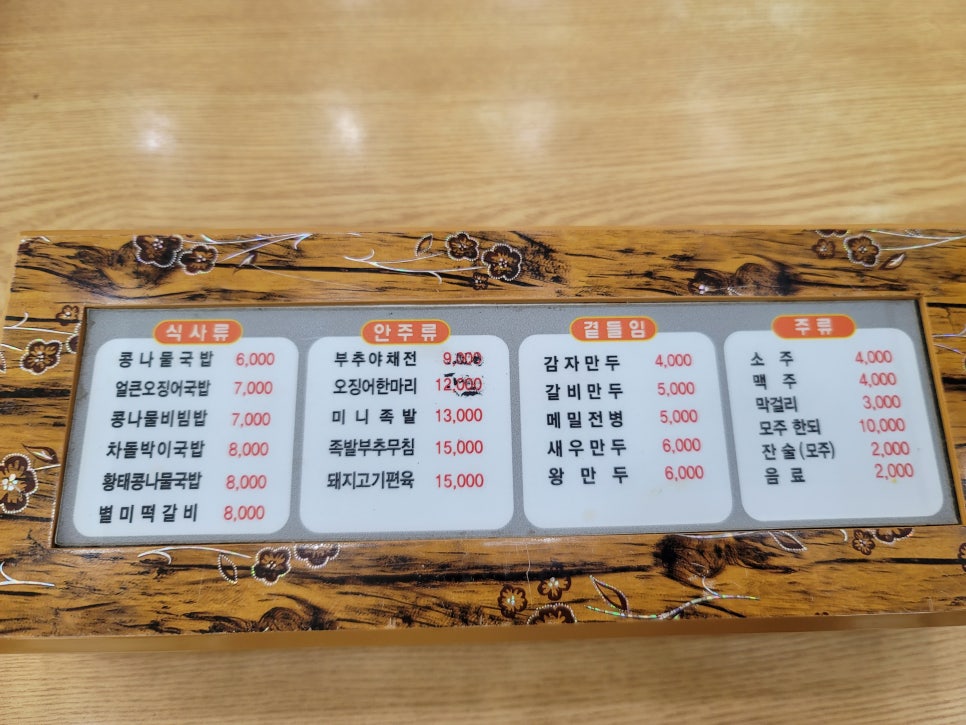 식사류
콩나물국밥 6,000
얼큰오징어국밥 7,000
콩나물비빔밥 7,000
차돌박이국밥 8,000
황태콩나물국밥 8,000
별미떡갈비 8,000
안주류
부추야채전 9,000
오징어한마리 12,000
미니족발 13,000
족발부추무침 15,000
돼지고기편육 15,000
곁들임
감자만두 4,000
갈비만두 5,000
메밀전병 5,000
새우만두 6,000
왕만두 6,000
주류
소주 4,000
맥주 4,000
막걸리 3,000
모주 한되 10,000
잔술(모주) 2,000
음료 2,000